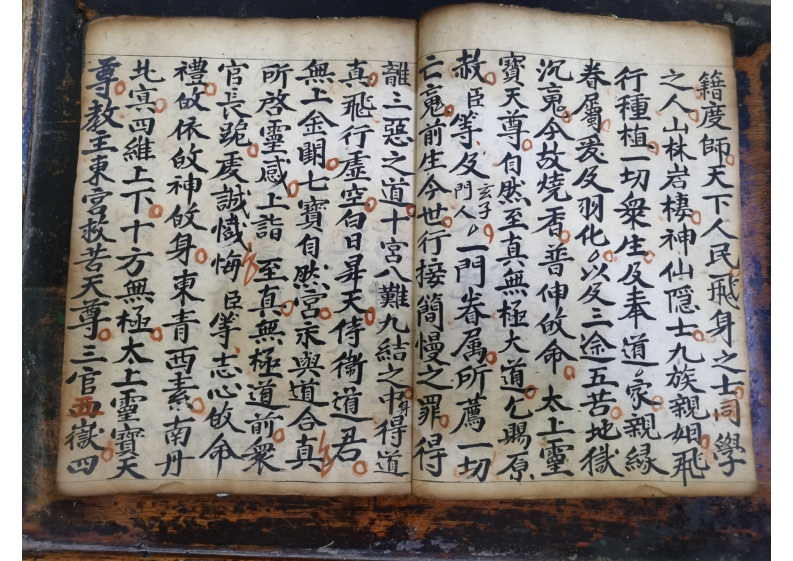 籍度師天下人民飛身之士同學
之人山林岩棲神仙隱士九族親姻飛
行種植一切衆生及奉道家親緣
眷屬爰及羽化以及三途五苦地獄
沉䰟今故燒香普伸皈命太上靈
寶天尊自然至真無極大道乞賜原
赦臣等及門人玄子一門眷属所薦一切
亡䰟前生今世行接簡慢之罪得
離三惡之道十宮八難九結之中身得道
真飛行虛空白日昇天侍衞道君
無上金闕七寶自然宮永與道合真
所啓靈感上詣至真無極道前衆
官長跪虔誠懴悔臣等志心皈命
禮皈依皈神皈身東青西素南丹
北㝠四維上下十方無極太上靈寶天
尊教主東宮救苦天尊三官西嶽四